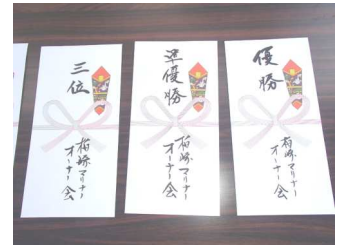 優勝
柏崎マリーナー
オーナー会
準優勝
柏崎マリーナー
オーナー会
三位
柏崎マリーナー
オーナー会